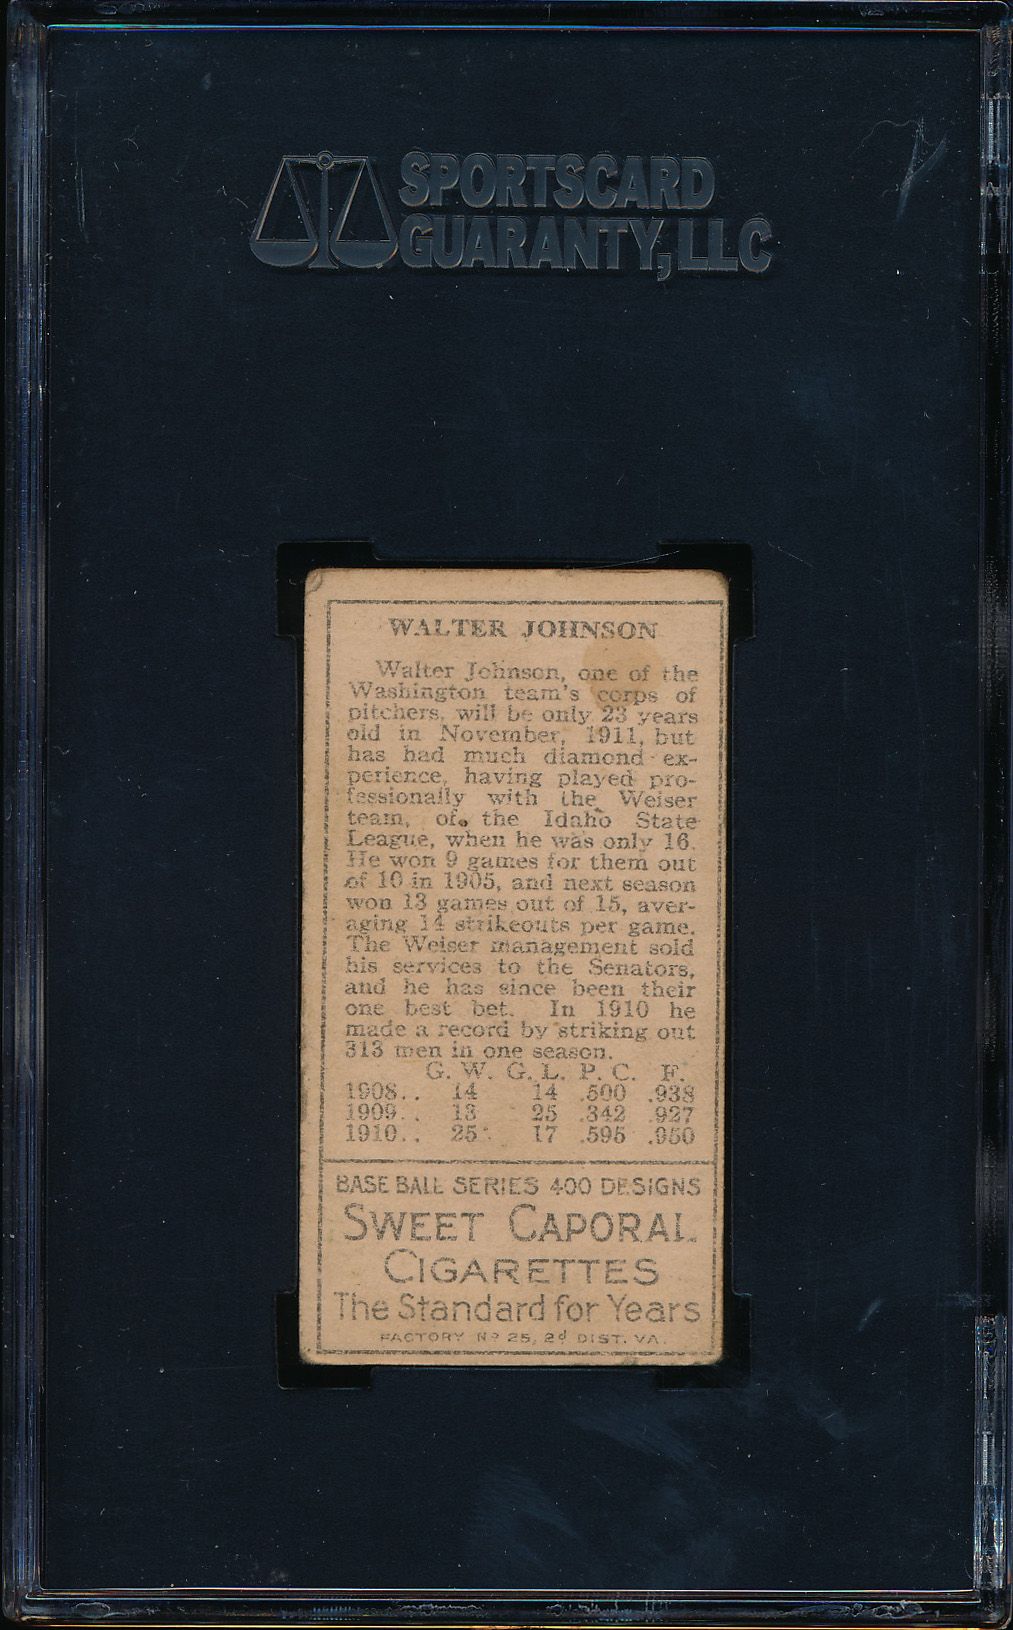 SPORTSCARD
GUARANTY, LLC
WALTER JOHNSON
Walter Johnson, one of the
Washington team's corps of
pitchers, will be only 23 years
old in November, 1911, but
has had much diamond ex-
perience, having played pro-
fessionally with the Weiser
team, of the Idaho State
League, when he was only 16.
He won 9 games for them out
of 10 in 1905, and next season
won 13 games out of 15, aver-
aging 14 strikeouts per game.
The Weiser management sold
his services to the Senators,
and he has since been their
one best bet. In 1910 he
made a record by striking out
313 men in one season.
G. W. G. L. P. C. F.
1908.. 14 14 .500 .938
1909.. 13 25 .342 .927
1910.. 25 17 .595 .950
BASE BALL SERIES 400 DESIGNS
SWEET CAPORAL
CIGARETTES
The Standard for Years
FACTORY Nº 25, 2d DIST. VA.